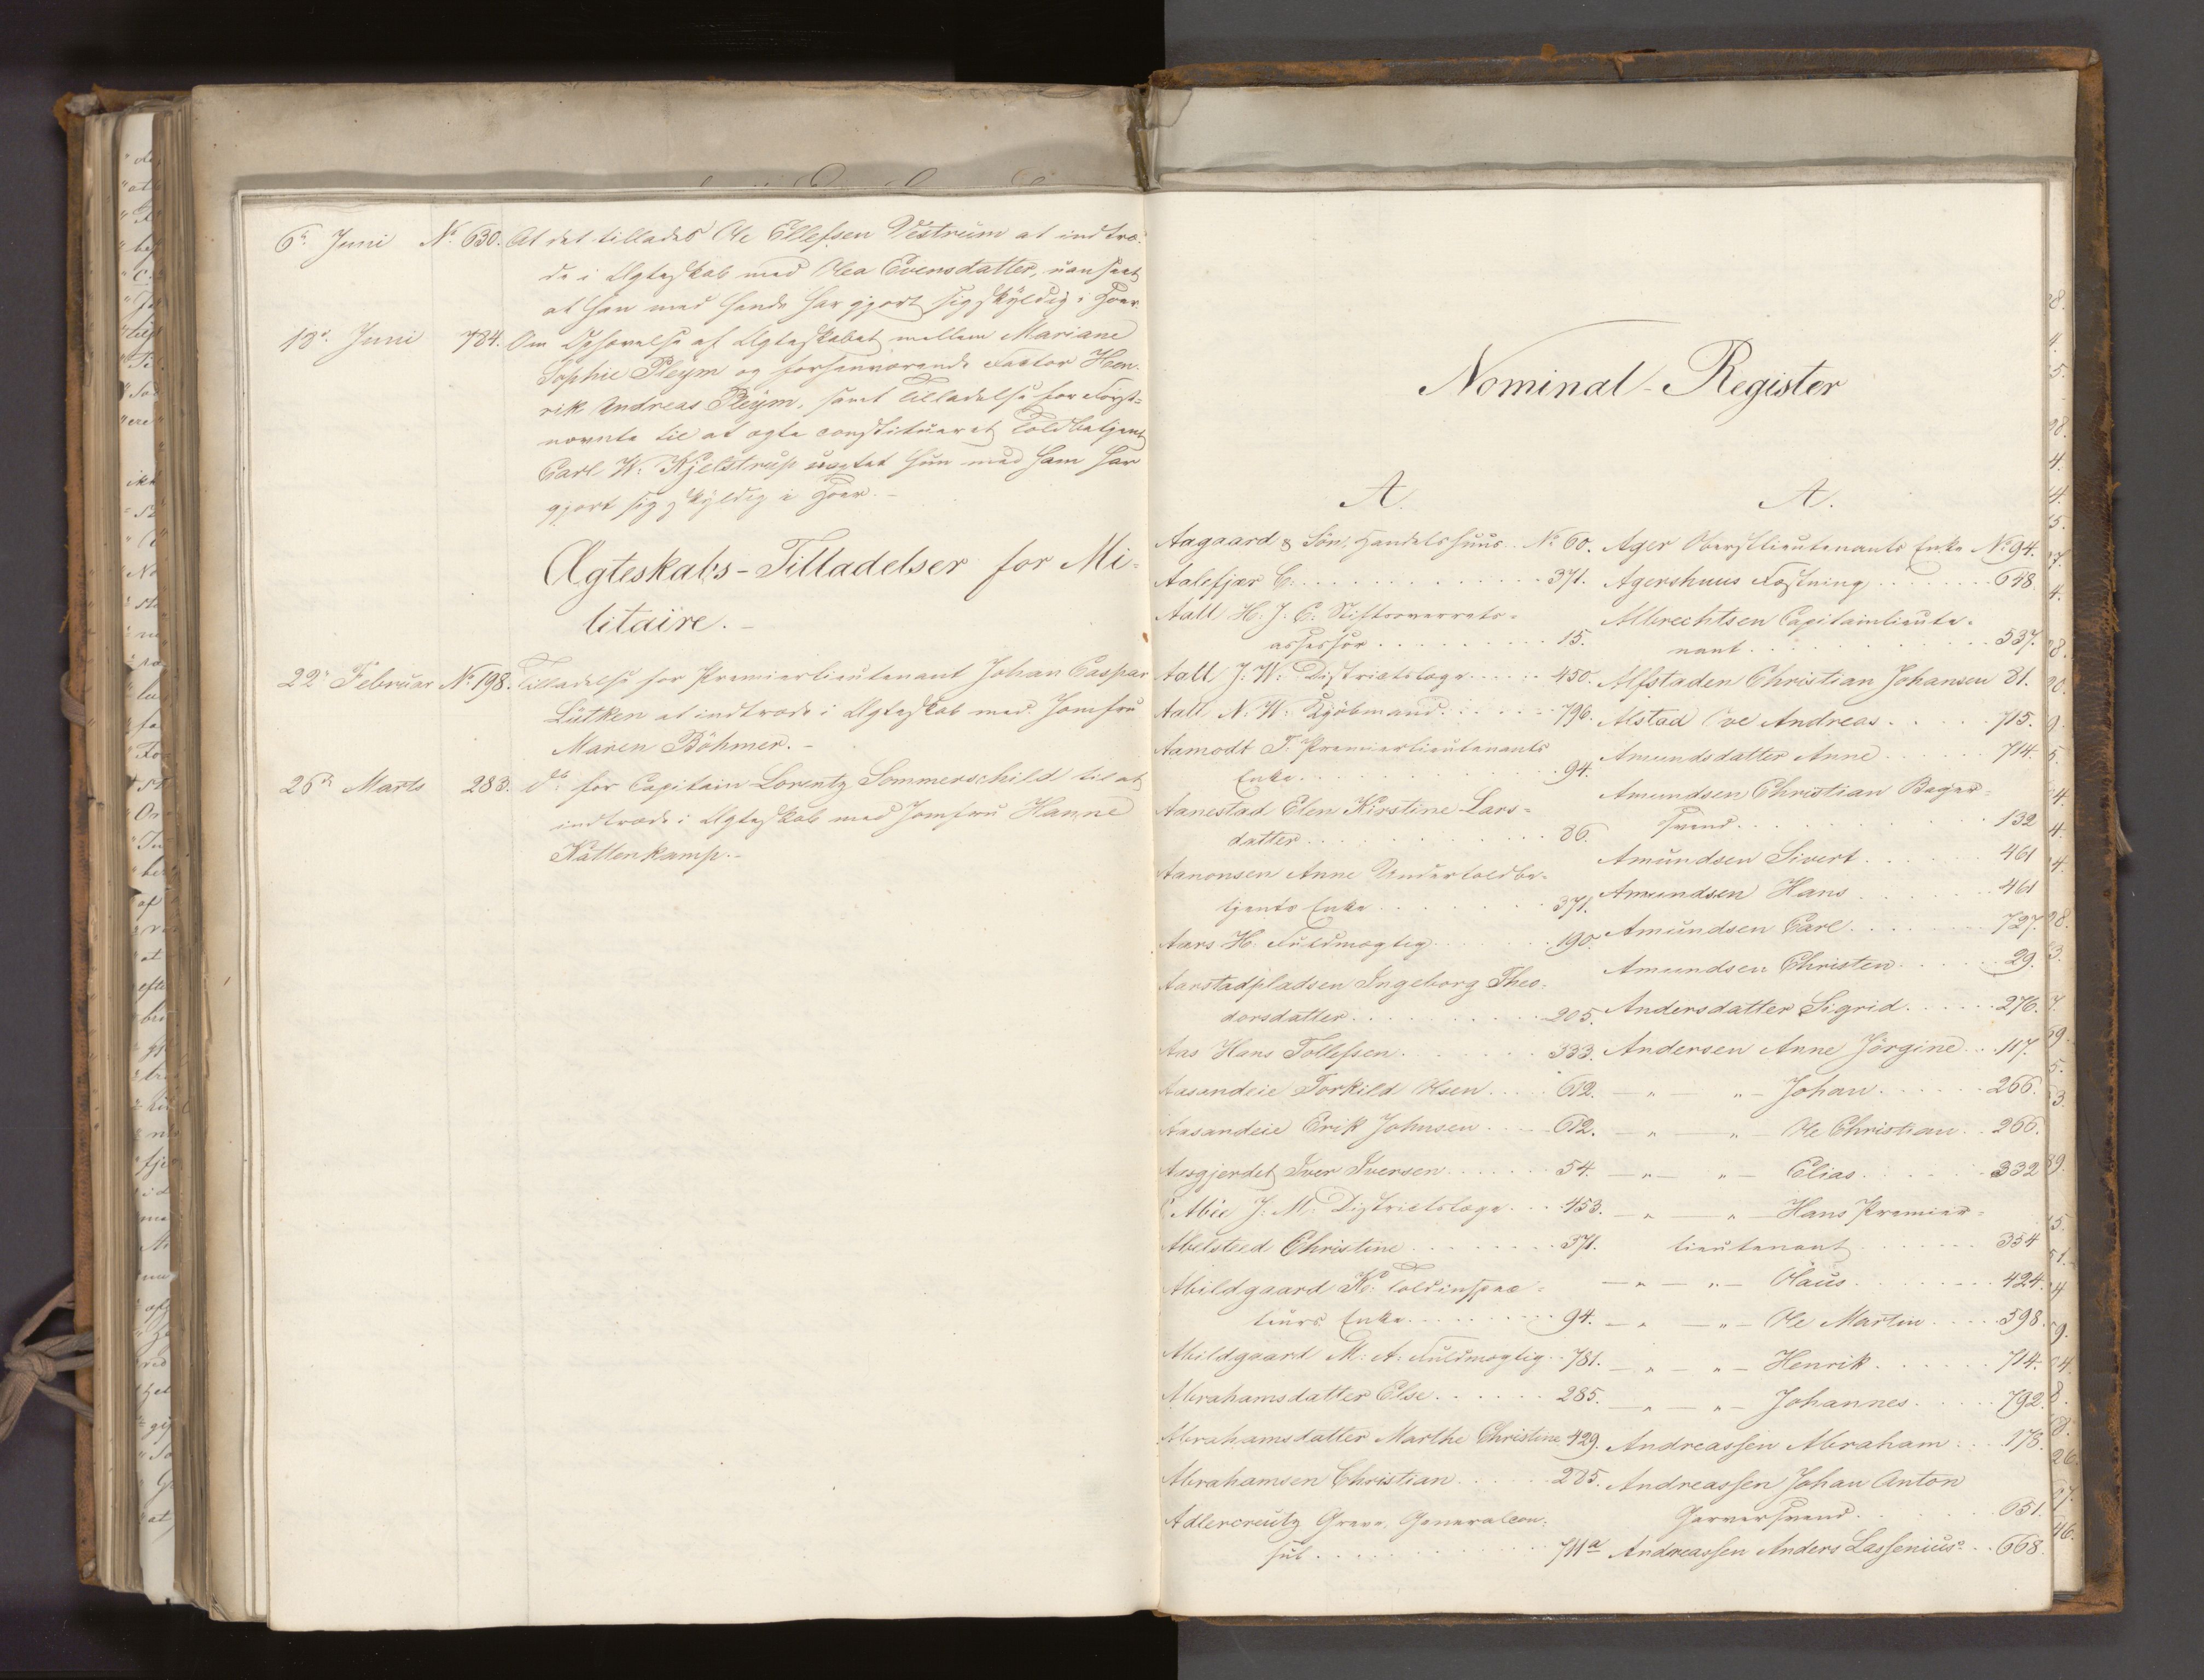 6te Juni No 630. At det tillades Ole Ellefsen Vestrum at indtræ-
de i Ægteskab med Olea Evensdatter, uanseet
at han med hende har gjort sig skyldig i Hoer.
13de Juni 784. Om Ophævelse af Ægteskabet mellem Mariane
Sophie Pleym og forhenværende Factor Hen-
rik Andreas Pleym, samt Tilladelse for Først-
nævnte til at ægte constitueret Toldbetjent
Carl W. Kjelstrup uagtet hun med ham har
gjort sig skyldig i Hoer.-
Ægteskabs-Tilladelser for Mi-
litaire.-
22de Februar No 198. Tilladelse for Premierlieutenant Johan Caspar
Lütken at indtræde i Ægteskab med Jomfru
Maren Böhmer.-
26de Marts 283. Do for Capitain Lorentz Sommerschild til at
indtræde i Ægteskab med Jomfru Hanne
Kattenkamp.-
Nominal-Register
A.
Aagaard & Sön, Handelshuus No 60.
Aalefjær C. 371.
Aall H. J. C. Stiftsoverrets-
assessor 15.
Aall J. W. Districtslæge 450.
Aall N. W. Kjöbmand 796.
Aamodt T. Premierlieutenants
Enke 94.
Aanestad Elen Kirstine Lars-
datter 86.
Aanonsen Anne Undertoldbe-
tjents Enke 371.
Aars H. Fuldmægtig 190.
Aarstadpladsen Ingeborg Theo-
dorsdatter 205.
Aas Hans Tollefsen 333.
Aasandeie Torkild Olsen 612.
Aasandeie Erik Johnsen 612.
Aasgjerdet Iver Iversen 54.
Abée J. M. Districtslæge 453.
Abelsted Christine 371.
Abildgaard K. Toldinspec-
teurs Enke 94.
Abildgaard M. A. Fuldmægtig 781.
Abrahamsdatter Else 285.
Abrahamsdatter Marthe Christine 429.
Abrahamsen Christian 285.
Adlercreutz Greve, Generalcon-
sul 711a
A.
Ager Oberstlieutenants Enke No 94.
Agershuus Fæstning 648
Albrechtsen Capitainlieute-
nant 537.
Alfstaden Christian Johansen 81.
Alstad Ove Andreas 715.
Amundsdatter Anne 714.
Amundsen Christian Bager-
svend 132
Amundsen Sivert 461
Amundsen Hans 461
Amundsen Carl 727.
Amundsen Christen 29.
Andersdatter Sigrid 276.
Andersen Anne Jörgine 117.
— " — " — Johan 266.
— " — " — Ole Christian 266.
— " — " — Elias 332
— " — " — Hans Premier-
lieutenant 354
— " — " — Olaus 424.
— " — " — Ole Martin 598.
— " — " — Henrik 714.
— " — " — Johannes 792.
Andreassen Abraham 178.
Andreassen Johan Anton
Garversvend 651.
Andreassen Anders Lassenius 668.